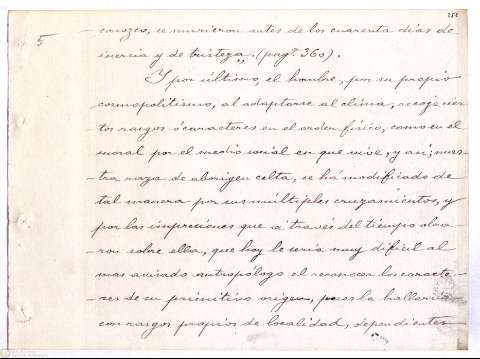 252
5
- conozco, se murieron antes de los cuarenta dias de
- inercia y de tristeza,, (pagª 360).
Y por último, el hombre, por su propio
cosmopolitismo, al adaptarse al clima, recoje cier-
- tos rasgos ó caracteres en el orden físico, como en el
moral por el medio social en que vive, y así; nues-
- tra raza de aborigen celta, se há modificado de
tal manera por sus múltiples cruzamientos, y
por las impresiones que á través del tiempo obra-
- ron sobre ella, que hoy le sería muy difícil al
mas avisado antropólogo el reconocer los caracte-
- res de su primitivo origen, pues la hallaria
con rasgos propios de localidad, dependientes